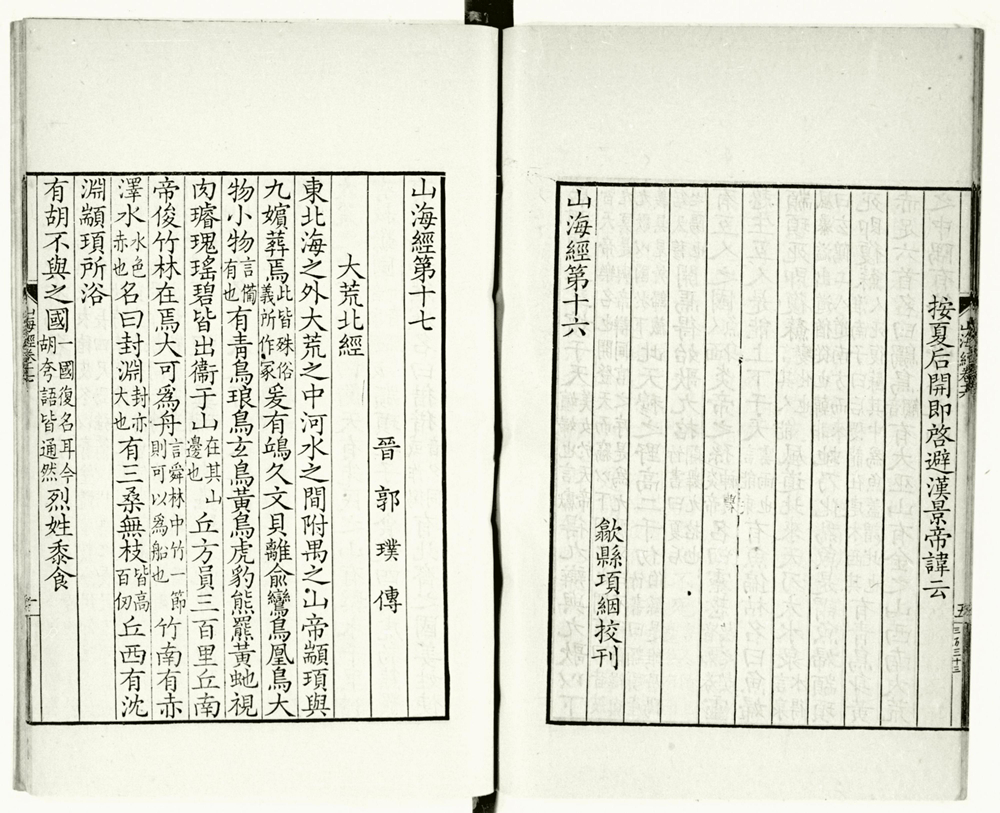 按夏后開即啓避漢景帝諱云
歙縣項絪校刊
山海經第十六
山海經第十七
晉郭璞傳
大荒北經
東北海之外大荒之中河水之間附禺之山帝顓頊與
九嬪葬焉此皆殊俗義所作冢爰有鴟久文貝離俞鸞鳥凰鳥大
物小物言備有也有青鳥琅鳥玄鳥黃鳥虎豹熊羆黃虵視
肉璿瑰瑤碧皆出衞于山在其山邊也丘方員三百里丘南
帝俊竹林在焉大可爲舟言舜林中竹一節則可以爲船也竹南有赤
澤水水色赤也名曰封淵封亦大也有三桑無枝皆高百仞丘西有沈
淵顓頊所浴
有胡不與之國一國復名耳今胡夸語皆通然烈姓黍食